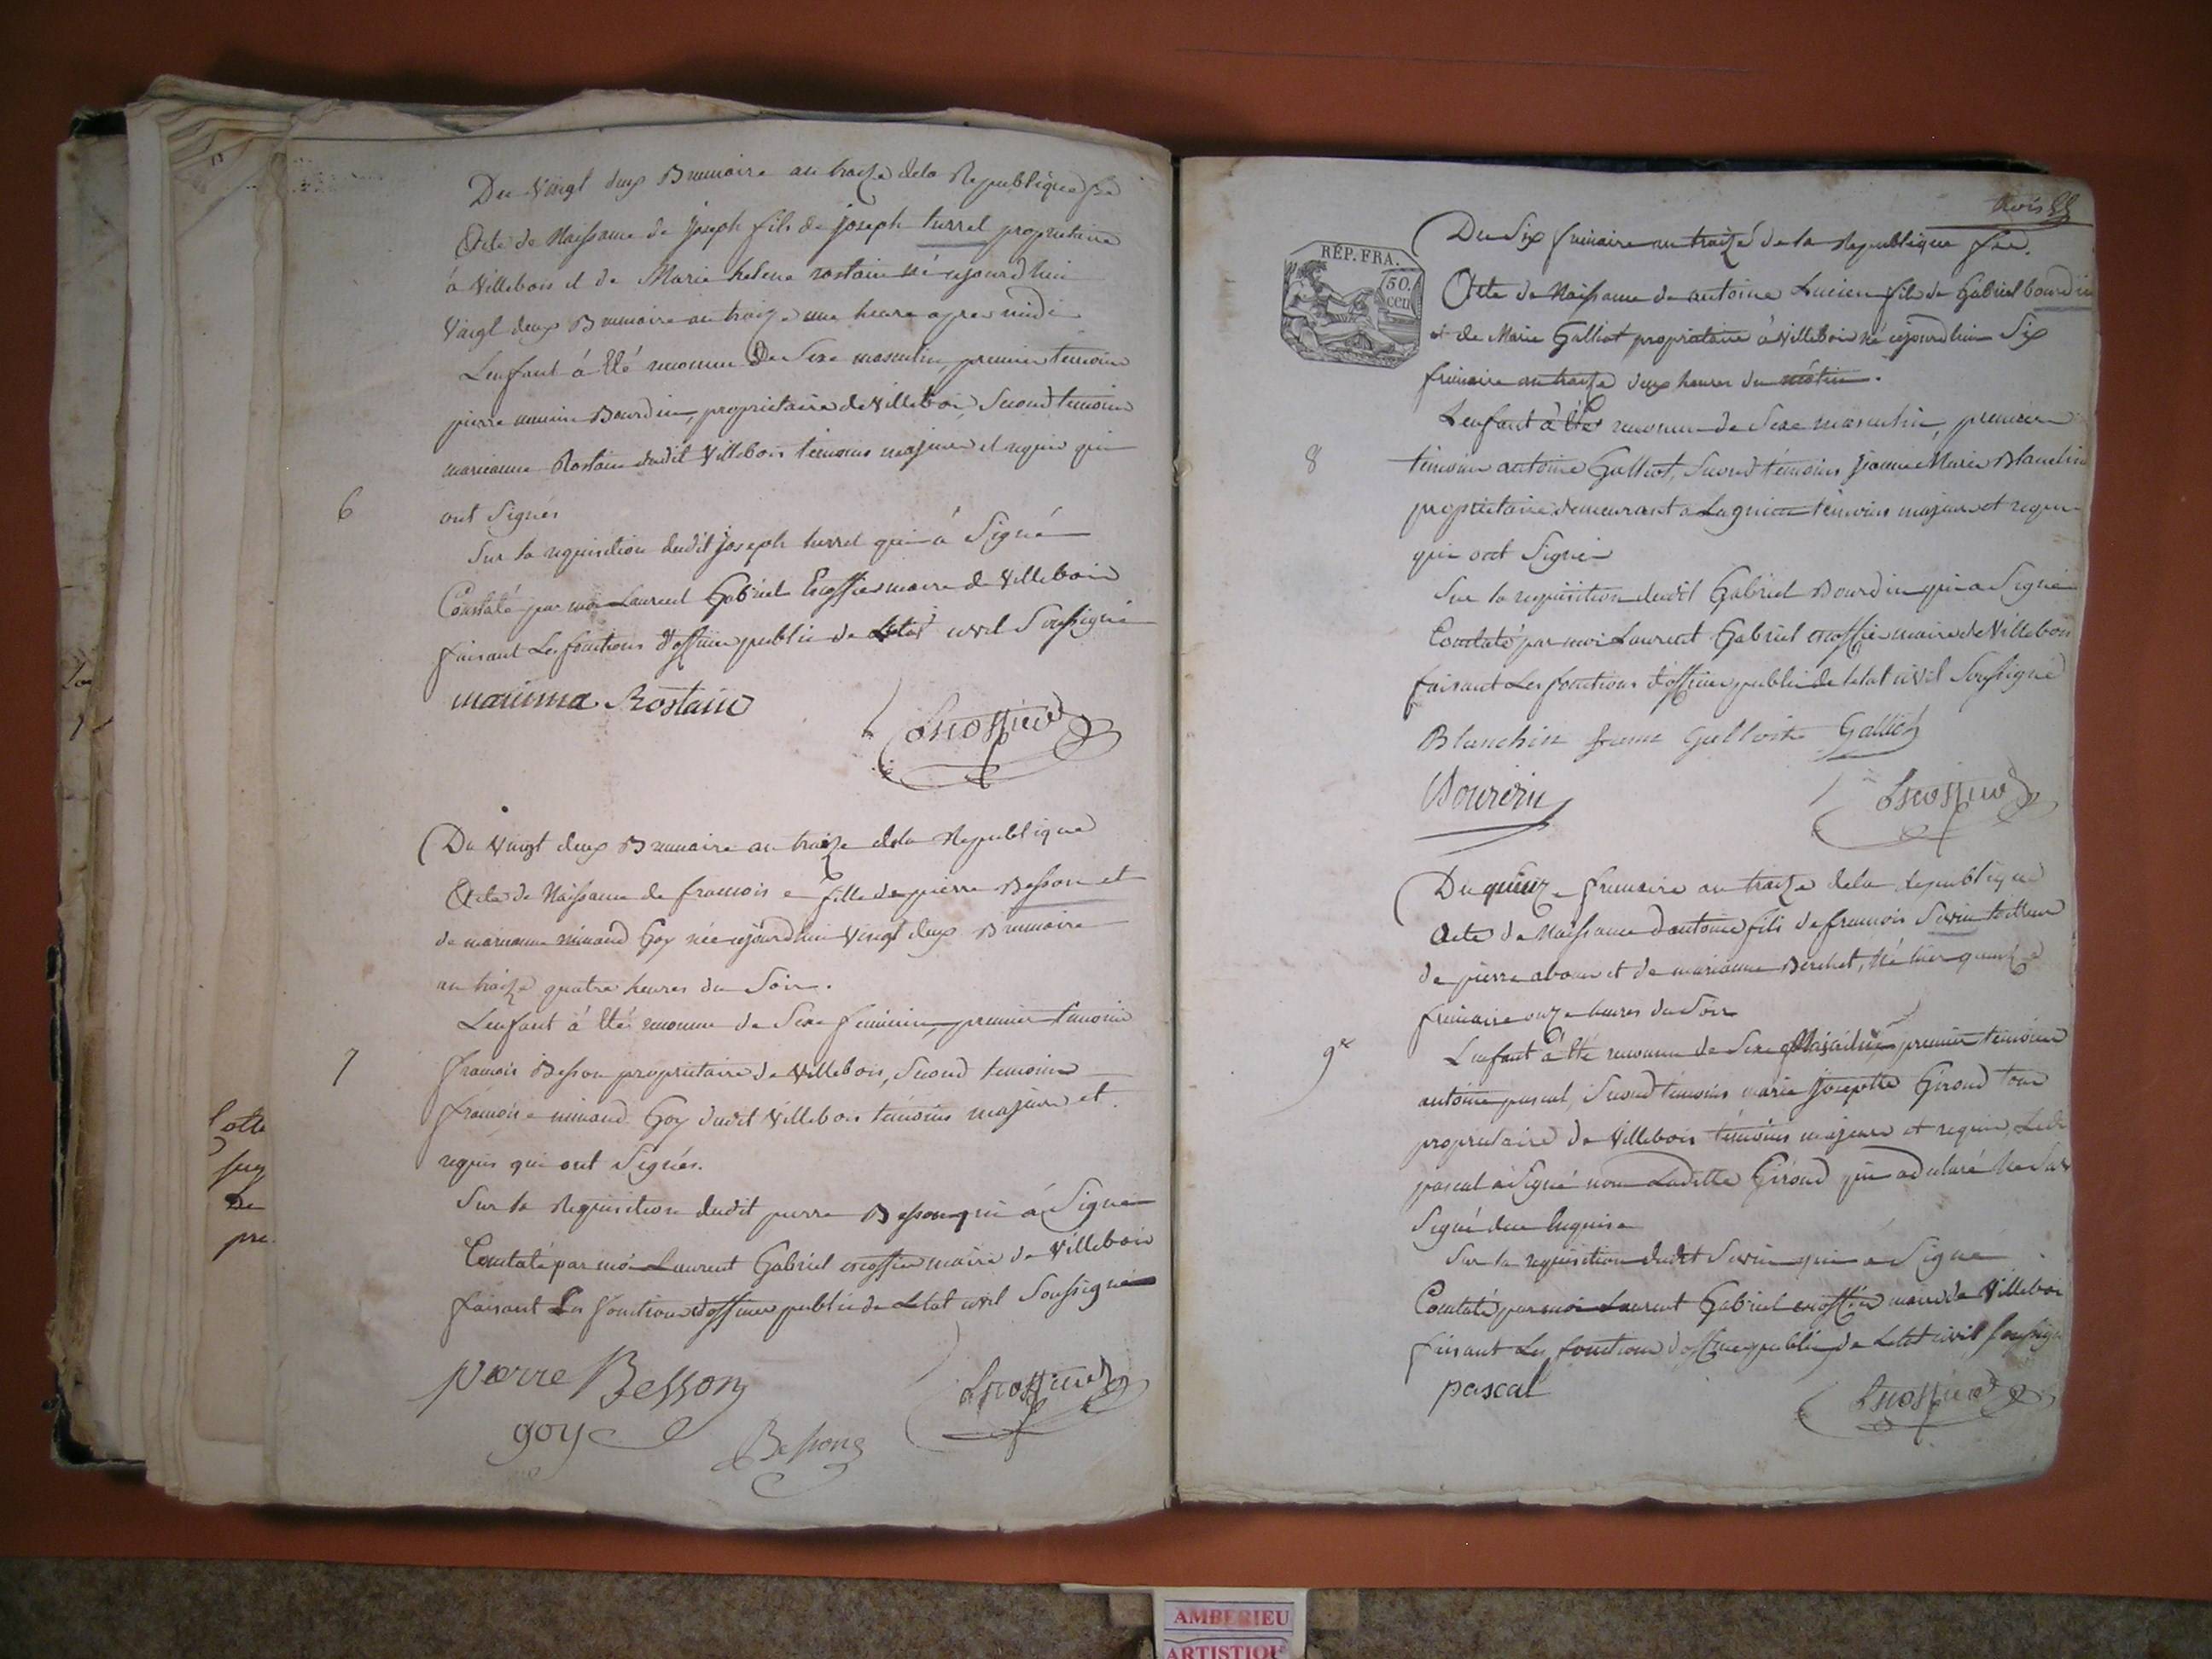 Du Vingt deux Brumaire an treize de la Republique fse
Acte de Naissance de joseph fils de joseph turrel proprietaire
á Villebois et de Marie helene rostain né cejourdhui
Vingt deux Brumaire an treize une heure apres midi
Lenfant á Eté reconnu De Sexe masculin, premier temoin
pierre Bourdin, proprietaire de Villebois, Second temoin
marianne Rostain dudit Villebois temoins majeurs et requis qui
6
ont Signés
Sur la requisition dudit joseph turrel qui á Signé
Constaté par moi Laurent Gabriel Escoffier maire de Villebois
faisant Les fonctions d'officier public de Létat civil Soussigné
marianna Rostain
Escoffier
Du Vingt deux Brumaire an treize dela Republique
Acte de Naissance de francois e fille de pierre Besson et
de marianne minand Goy née cejourdhui Vingt deux Brumaire
an treize quatre heures du Soir.
Lenfant á Eté reconnu de Sexe feminin, premier temoin
7
francois Besson proprietaire de Villebois, Second temoin
francoise minand Goy dudit Villebois temoins majeurs et
requis qui ont Signés.
Sur la Requisition dudit pierre Besson qui á Signé
Constaté par moi Laurent Gabriel escoffier maire de Villebois
faisant Les fonctions d'officier public de Letat civil Soussigné
pierre Besson
Escoffier
goy
Besson
trois
REP. FRA.
50.
cen
Du Six frimaire an treize de la Republique fse.
Acte de Naissance de antoine Lucien fils de Gabriel bourdin
et de Marie Galliot proprietaire á Villebois né cejourdhui Six
frimaire an treize deux heures du matin.
Lenfant á Eté reconnu de Sexe masculin, premier
8
temoin antoine Galliot, Second temoins jeanne Marie Blanchin
proprietaire demeurant a Lagnieu temoins majeurs et requis
qui ont Signé
Sur la requisition dudit Gabriel Bourdin qui a Signé
Constaté par moi Laurent Gabriel escoffier maire de Villebois
faisant Les fonctions d'officier public de letat civil Soussigné
Blanchin femme Galliot Galliot
Bourdin
Escoffier
Du quinze frimaire an treize dela Republique
Acte de Naissance d'antoine fils de francois Savin tailleur
de pierre et de marianne Berchet, né hier
frimaire onze heures du Soir
Lenfant á Eté reconnu de Sexe Masculin premier temoin
9e
antoine pascal, Second temoins marie josephte Giroud tous
proprietaire de Villebois temoins majeurs et requis, Led.
pascal á Signé non Ladite Giroud qui a declaré ne Savoir
Signé due Enquise
Sur la requisition dudit Savin qui a Signé
Constaté par moi Laurent Gabriel escoffier maire de Villebois
faisant Les fonctions d'officier public de Letat civil soussigné
pascal
Escoffier
AMBERIEU
ARTISTIQU